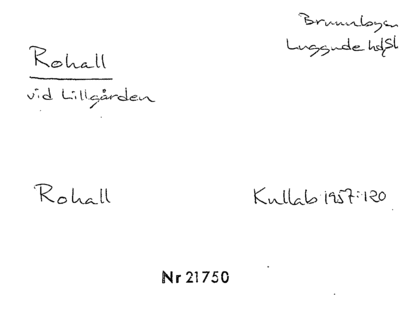 Rohall
vid Lillgården
Luggude hd Sk
Rohall
Kullab 1957:120
Nr 21750